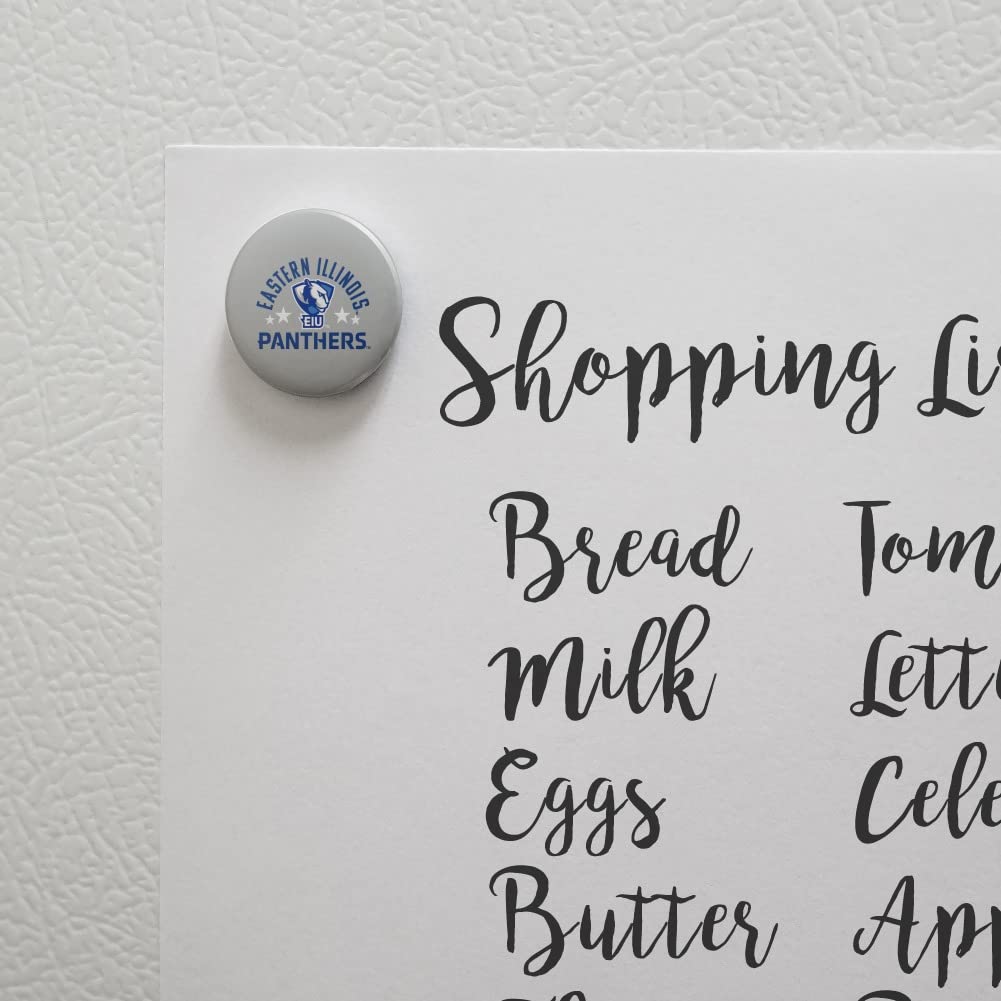 EASTERN ILLINOIS
EIU
PANTHERS
Shopping Li
Bread Tom
Milk Lett
Eggs Cele
Butter App